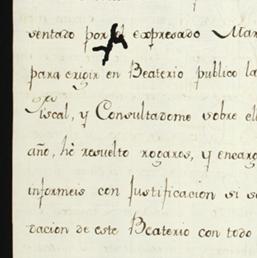 sentado por el expresado Mar
para erigir en Beaterio publico la
Fiscal, y Consultadome sobre el
año, hè resuelto rogaros, y encarg
informeis con Justificacion si s
vacion de este Beaterio con todo